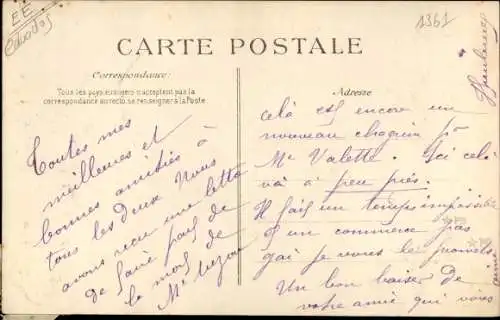 EE
Calvados
1361
CARTE POSTALE
Correspondance:
Tous les pays étrangers n'acceptent pas la
correspondance au recto, se renseigner à la Poste
Adresse
Toutes mes
meilleures et
bonnes amitiés à
tous les deux Nous
avons reçu une lettre
de faire part de
la mort de
Mr
celà est encore un
nouveau chagrin pr
Me Valette. Ici celà
và à peu près.
Il fait un temps impossible
et un commerce pas
gai je vous le promets
Un bon baiser de
votre amie qui vous
aime